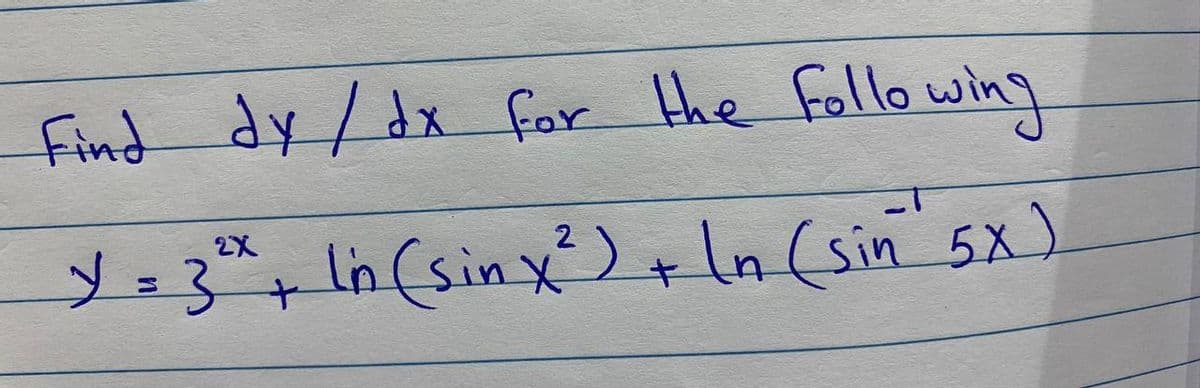 Find dy / dx for the following
y = 3^2x + ln (sin x^2) + ln (sin^-1 5x)